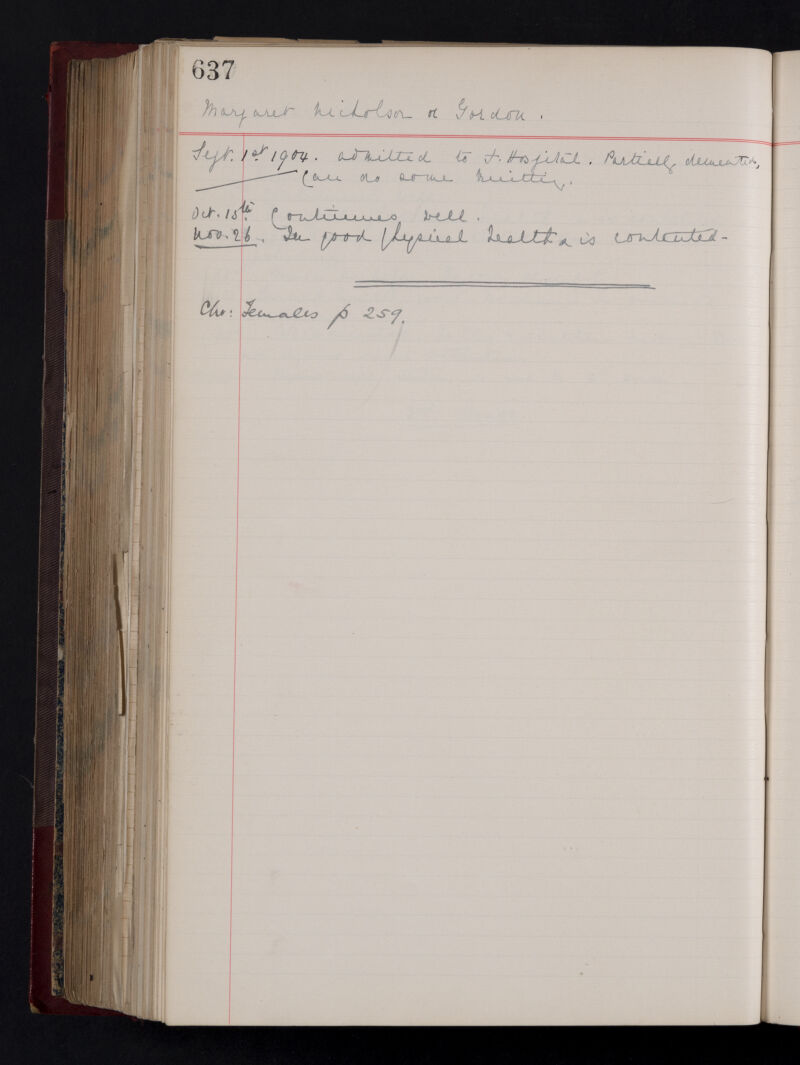 637
Margaret Nicholson or Gordon.
Sept. 1st 1904. admitted to F. Hospital. Partially demented,
Can do some knitting.
Oct. 15th. Continues well.
Nov. 26. In good physical health & is contented-
Chr: Females p 259.